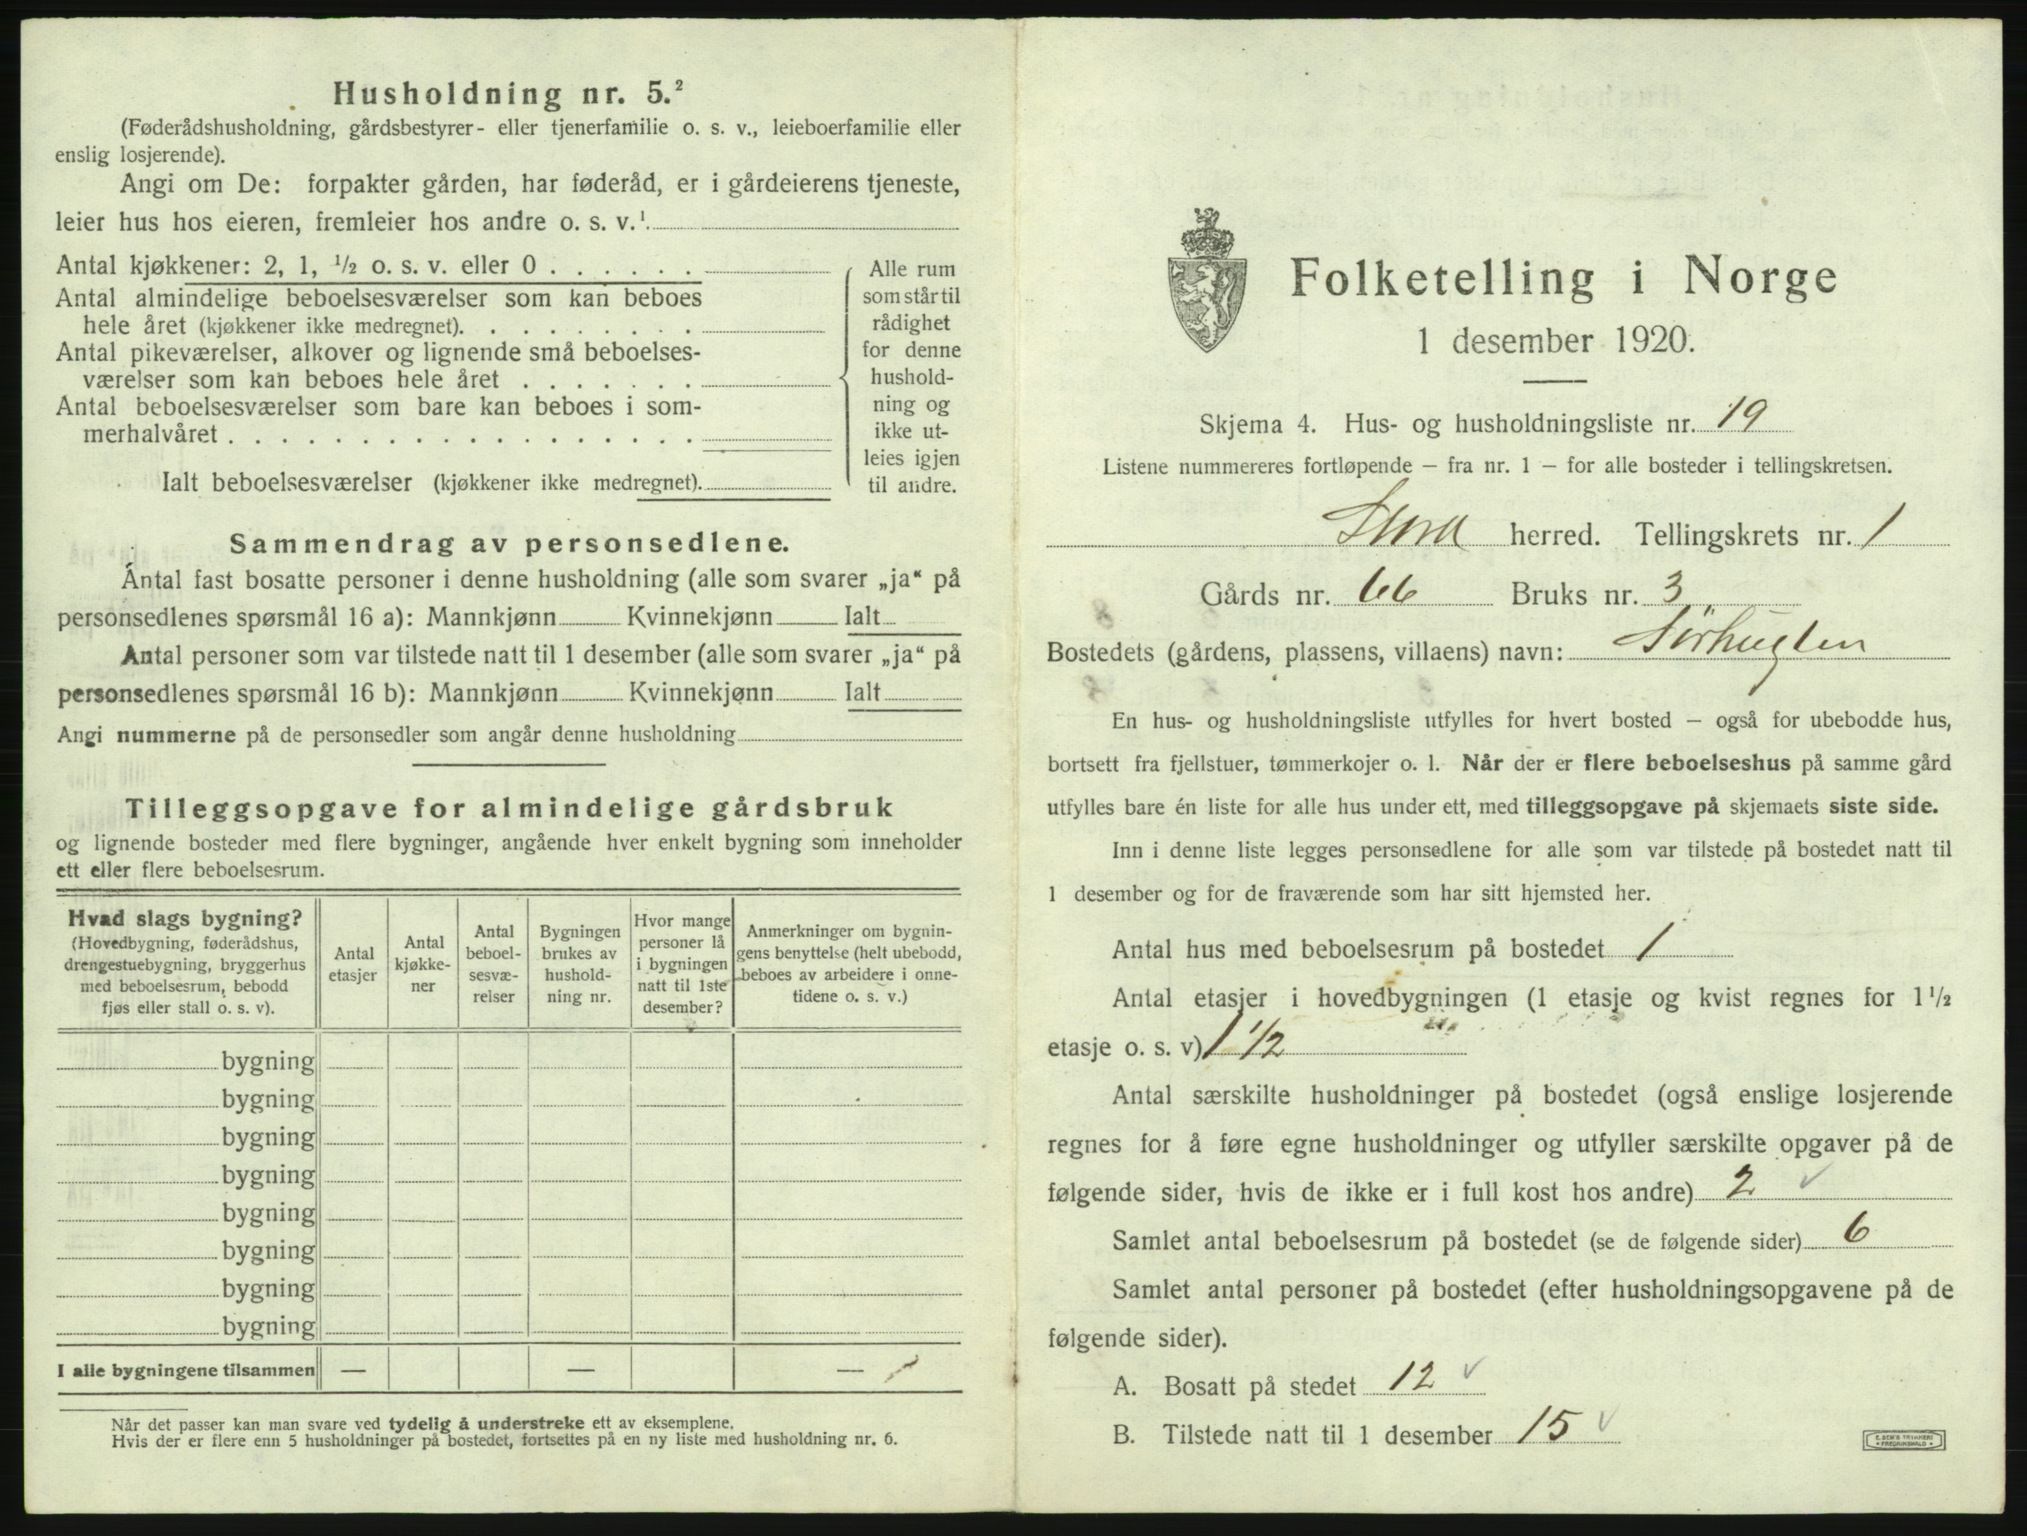 Husholdning nr. 5.²
(Føderådshusholdning, gårdsbestyrer- eller tjenerfamilie o. s. v., leieboerfamilie eller
enslig losjerende).
Angi om De: forpakter gården, har føderåd, er i gårdeierens tjeneste,
leier hus hos eieren, fremleier hos andre o. s. v.¹
Antal kjøkkener: 2, 1, ½ o. s. v. eller 0 . . . . . .
Antal almindelige beboelsesværelser som kan beboes
hele året (kjøkkener ikke medregnet). . . . . . . . .
Antal pikeværelser, alkover og lignende små beboelses-
værelser som kan beboes hele året . . . . . . .
Antal beboelsesværelser som bare kan beboes i som-
merhalvåret . . . . . . . . . . . . . . . . . .
Ialt beboelsesværelser (kjøkkener ikke medregnet).
Alle rum
som står til
rådighet
for denne
hushold-
ning og
ikke ut-
leies igjen
til andre.
Sammendrag av personsedlene.
Antal fast bosatte personer i denne husholdning (alle som svarer „ja“ på
personsedlenes spørsmål 16 a): Mannkjønn Kvinnekjønn Ialt
Antal personer som var tilstede natt til 1 desember (alle som svarer „ja“ på
personsedlenes spørsmål 16 b): Mannkjønn Kvinnekjønn Ialt
Angi nummerne på de personsedler som angår denne husholdning
Tilleggsopgave for almindelige gårdsbruk
og lignende bosteder med flere bygninger, angående hver enkelt bygning som inneholder
ett eller flere beboelsesrum.
Hvad slags bygning?
(Hovedbygning, føderådshus,
drengestuebygning, bryggerhus
med beboelsesrum, bebodd
fjøs eller stall o. s. v).
Antal
etasjer
Antal
kjøkke-
ner
Antal
beboel-
sesvæ-
relser
Bygningen
brukes av
hushold-
ning nr.
Hvor mange
personer lå
i bygningen
natt til 1ste
desember?
Anmerkninger om bygnin-
gens benyttelse (helt ubebodd,
beboes av arbeidere i onne-
tidene o. s. v.)
bygning
bygning
bygning
bygning
bygning
bygning
bygning
bygning
I alle bygningene tilsammen — — —
Når det passer kan man svare ved tydelig å understreke ett av eksemplene.
Hvis der er flere enn 5 husholdninger på bostedet, fortsettes på en ny liste med husholdning nr. 6.
Folketelling i Norge
1 desember 1920.
Skjema 4. Hus- og husholdningsliste nr. 19
Listene nummereres fortløpende – fra nr. 1 – for alle bosteder i tellingskretsen.
Stord herred. Tellingskrets nr. 1
Gårds nr. 66 Bruks nr. 3
Bostedets (gårdens, plassens, villaens) navn: Sørhuglen
En hus- og husholdningsliste utfylles for hvert bosted – også for ubebodde hus,
bortsett fra fjellstuer, tømmerkojer o. l. Når der er flere beboelseshus på samme gård
utfylles bare én liste for alle hus under ett, med tilleggsopgave på skjemaets siste side.
Inn i denne liste legges personsedlene for alle som var tilstede på bostedet natt til
1 desember og for de fraværende som har sitt hjemsted her.
Antal hus med beboelsesrum på bostedet 1
Antal etasjer i hovedbygningen (1 etasje og kvist regnes for 1½
etasje o. s. v) 1 1/2
Antal særskilte husholdninger på bostedet (også enslige losjerende
regnes for å føre egne husholdninger og utfyller særskilte opgaver på de
følgende sider, hvis de ikke er i full kost hos andre) 2 ✓
Samlet antal beboelsesrum på bostedet (se de følgende sider) 6
Samlet antal personer på bostedet (efter husholdningsopgavene på de
følgende sider).
A. Bosatt på stedet 12 ✓
B. Tilstede natt til 1 desember 15 ✓
E. SEM'S TRYKKERI
FREDRIKSHALD